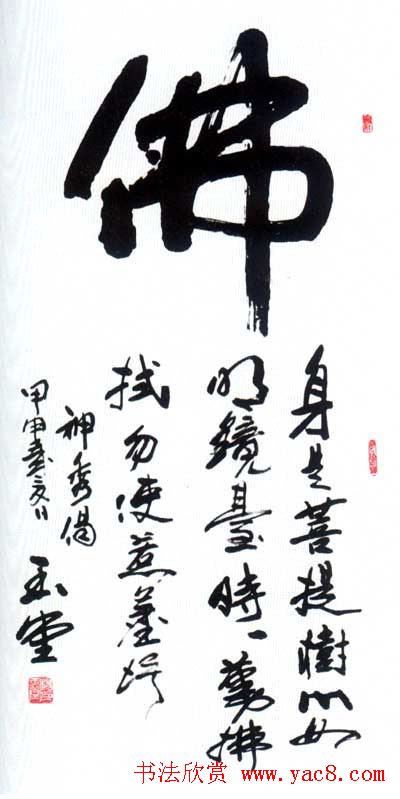 佛
身是菩提樹心如
明鏡臺時〻勤拂
拭勿使惹塵埃
神秀偈
甲申
玉堂
书法欣赏 www.yac8.com